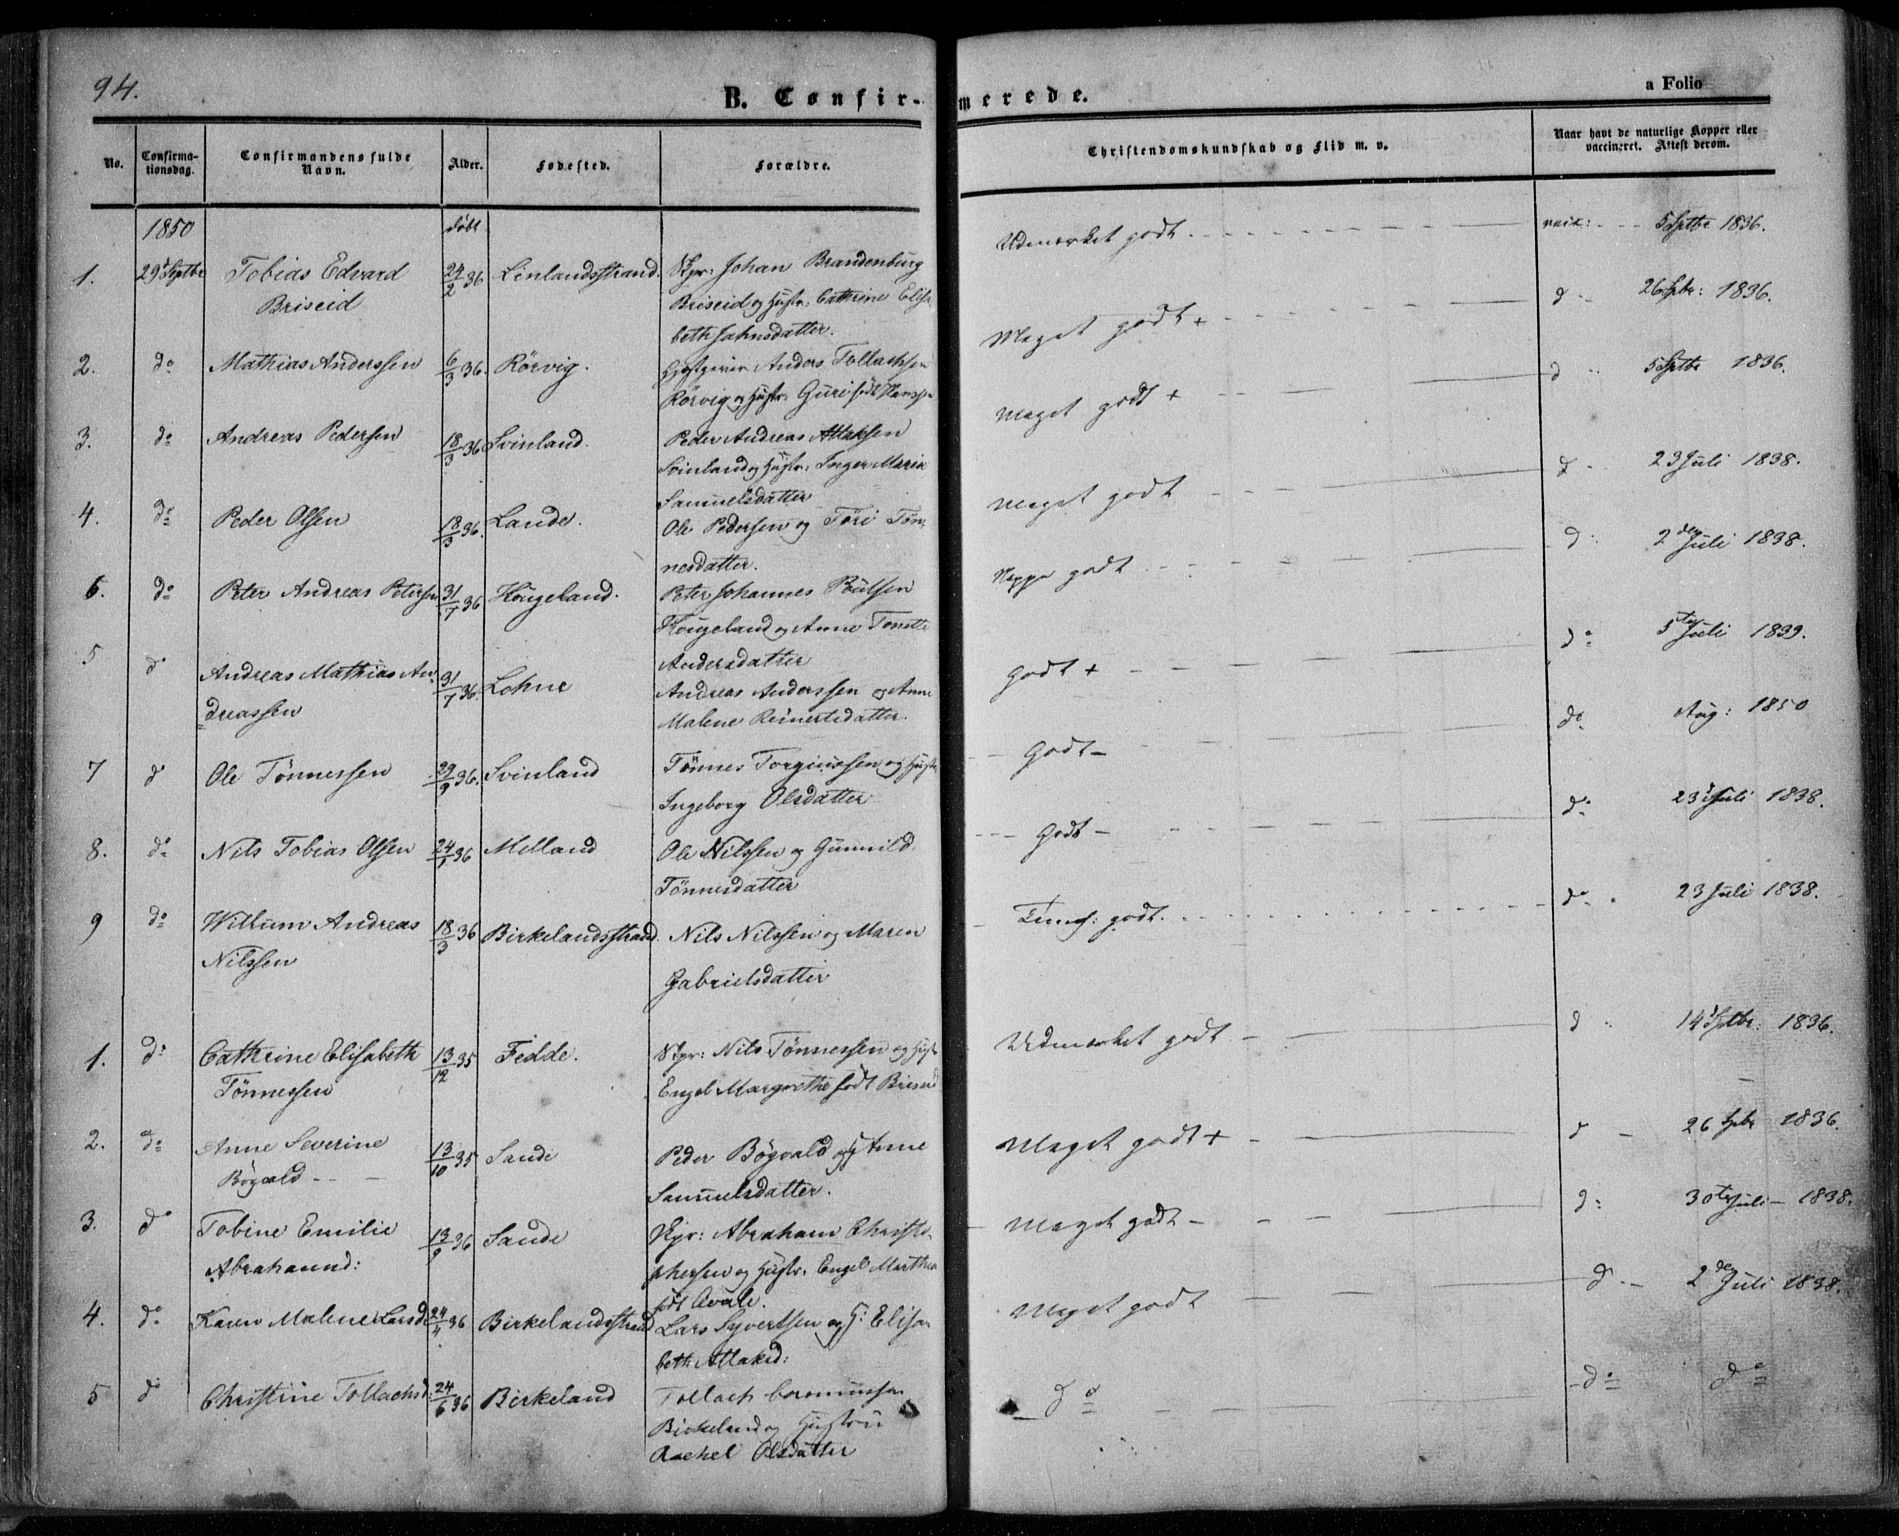 94.
B. Confir-
merede.
a Folio
No.
Confirma-
tionsdag.
Confirmandens fulde
Navn.
Alder.
Fødested.
Forældre.
Christendomskundskab og Flid m. v.
Naar havt de naturlige Kopper eller
vaccineret. Attest derom.
1850
døbt
1. 29 Septbr Tobias Edvard 24/2 36 Linlandsstrand. Skpr: Johan Brandenburg
Briseid Briseid og Hustr: Cathrine Elisa-
beth Jahnsdatter.
Udmærket godt. vacc: 5 Septbr 1836.
2. do Mathias Anderssen 6/3 36. Rörvig. Gjæstgiver Anders Tollachsen
Rörvig og Hustr: Guri født Hanssen
Meget godt + d 26 Spbr: 1836.
3. do Andreas Pedersen 18/3 36 Svinland. Peder Andreas Atlaksen
Svinland og Hustr: Inger Maria
Samuelsdatter
Meget godt + d 5 Septbr 1836.
4. do Peder Olsen 18/3 36. Lande. Ole Pedersen og Töri Tön-
nesdatter.
Meget godt d 23 Juli 1838.
6. do Peter Andreas Petersen 31/7 36 Hougeland. Peter Johannes Poulsen
Hougeland og Anne Tonette
Andersdatter
Neppe godt d 2den Juli 1838.
5 do Andreas Mathias An- 31/7 36. Lohne Andreas Anderssen og Anne
dreassen Malene Reinertsdatter.
Godt + do 5te Juli 1839.
7 do Ole Tönnessen 29/9 36. Svinland Tönnes Torgiussen og Hustr
Ingeborg Olsdatter
Godt - do Aug: 1850
8. do Nils Tobias Olsen 24/1 36 Melland Ole Nilssen og Gunnild
Tönnesdatter
Godt - do 23 Juli 1838.
9 do Willum Andreas 18/3 36 Birkelandsstrand. Nils Nilssen og Maren
Nilssen Gabrielsdatter
Temf: godt. do 23 Juli 1838.
1. do Cathrine Elisabeth 13/12 35 Fedde. Skpr: Nils Tönnessen og Hustr
Tönnessen Engel Margrethe født Briseid
Udmærket godt d 14 Septbr: 1836.
2. do Anne Severine 13/10 35 Sande Peder Bögvald og Anne
Bögvald Samuelsdatter.
Meget godt + d 26 Spbr 1836.
3. do Tobine Emilie 13/9 36 Sande Skpr: Abraham Christo-
Abrahamd: phersen og Hustr. Engel Marthea
født Avale.
Meget godt - d: 30te Juli - 1838.
4. do Karen Malene Larsd: 24/4 36 Birkelandsstrand Lars Syvertsen og H: Elisa-
beth Atlaksd:
Meget godt d 2de Juli 1838.
5 do Christine Tollachsd: 24/6 36 Birkeland Tollach
Birkeland og Hustru
Rachel Olsdatter
do do do